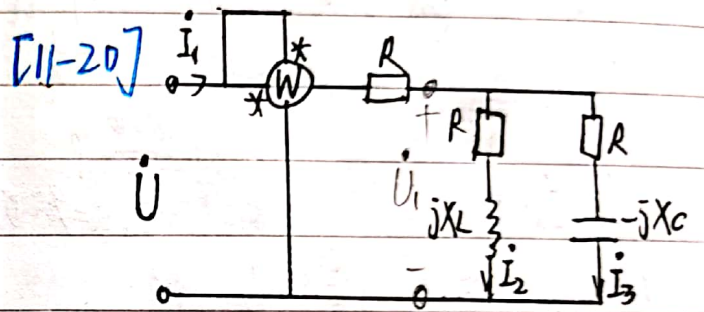 [11-20]
İ₁
*
*
W
R
+
R
R
U̇
U̇₁
jXL
-jXC
İ₂
İ₃
-